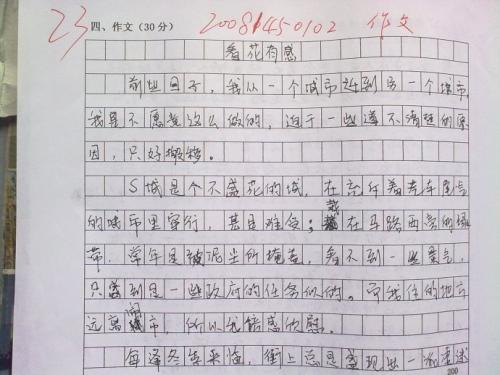 23
四、作文(30分) 2008145 0102 作文
看花有感
前些日子,我从一个城市迁到另一个城市,
我是不愿意这么做的,迫于一些道不清楚的原
因,只好搬移。
S城是个不盛花的城,在充斥着汽车尾气
的城市里穿行,甚是难受;栽在马路两旁的绿
带,常年是被泥尘所掩盖,看不到一些柔气,
只感到是一些政府的任务似的。可我住的地方
远离闹市,所以我能感欣慰。
每逢冬季来临,街上总是盛现出一派
200